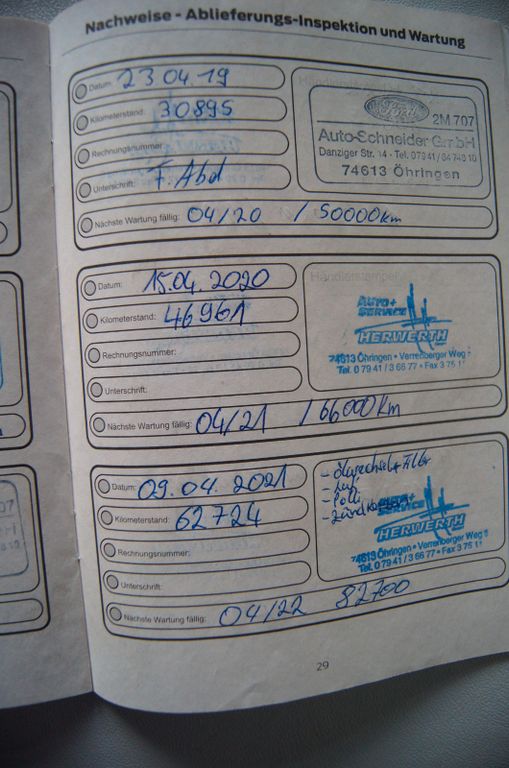 Nachweise - Ablieferungs-Inspektion und Wartung
Datum: 23 04. 19
Kilometerstand: 30895
Rechnungsnummer:
Unterschrift: F. Abd
Nächste Wartung fällig: 04/20 / 50000km
Ford
2M 707
Auto-Schneider GmbH
Danziger Str. 14 - Tel. 07941/64 748 10
74613 Öhringen
Datum: 15.04. 2020
Kilometerstand: 46961
Rechnungsnummer:
Unterschrift:
Nächste Wartung fällig: 04/21 / 66000Km
Händlerstempel
AUTO+
SERVICE
HERWERTH
74613 Öhringen • Verrenberger Weg
Tel. 0 79 41 / 3 66 77 • Fax 3 75 1
Datum: 09. 04. 2021
Kilometerstand: 62724
Rechnungsnummer:
Unterschrift:
Nächste Wartung fällig: 04/22 82700
- Ölwechsel + Filter
- Luf.
- Poll.
AUTO+
SERVICE
HERWERTH
74613 Öhringen • Verrenberger Weg
Tel. 0 79 41 / 3 66 77 • Fax 3 75 1
29